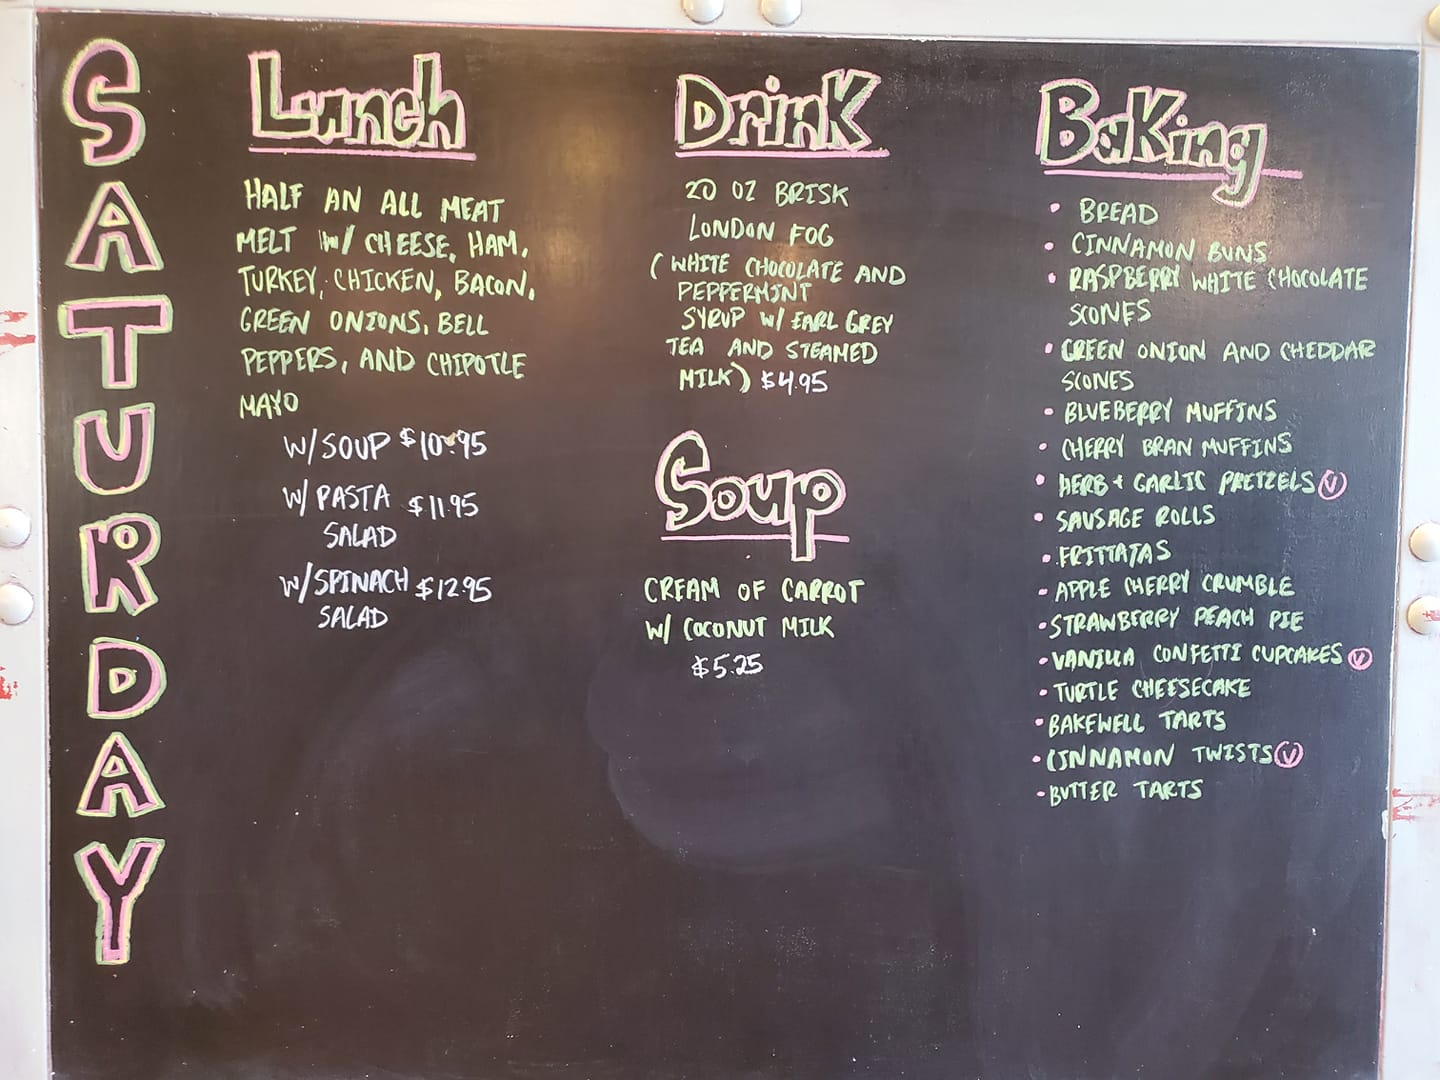 SATURDAY
Lunch
HALF AN ALL MEAT
MELT w/ CHEESE, HAM,
TURKEY, CHICKEN, BACON,
GREEN ONIONS, BELL
PEPPERS, AND CHIPOTLE
MAYO
W/SOUP $10.95
W/PASTA $11.95
SALAD
W/SPINACH $12.95
SALAD
Drink
20 OZ BRISK
LONDON FOG
(WHITE CHOCOLATE AND
PEPPERMINT
SYRUP W/ EARL GREY
TEA AND STEAMED
MILK) $4.95
Soup
CREAM OF CARROT
W/ COCONUT MILK
$5.25
Baking
• BREAD
• CINNAMON BUNS
• RASPBERRY WHITE CHOCOLATE
SCONES
• GREEN ONION AND CHEDDAR
SCONES
• BLUEBERRY MUFFINS
• CHERRY BRAN MUFFINS
• HERB + GARLIC PRETZELS Ⓥ
• SAUSAGE ROLLS
• FRITTATAS
• APPLE CHERRY CRUMBLE
• STRAWBERRY PEACH PIE
• VANILLA CONFETTI CUPCAKES Ⓥ
• TURTLE CHEESECAKE
• BAKEWELL TARTS
• CINNAMON TWISTS Ⓥ
• BUTTER TARTS